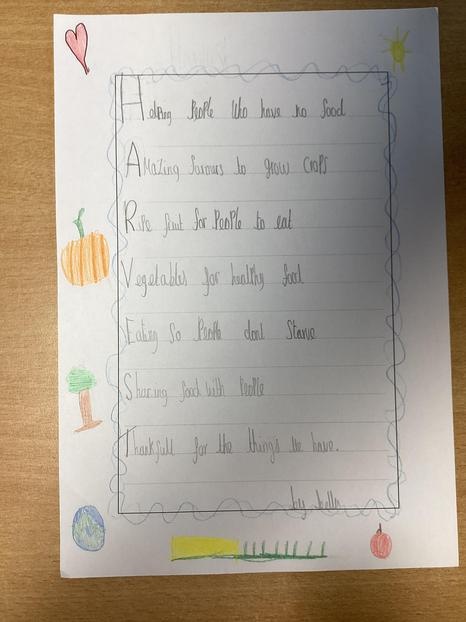 Helping People Who have no food
AMazing farmers to grow crops
Ripe fruit for People to eat
Vegetables for healthy food
Eating So People dont Starve
Sharing food with People
Thankfull for the things we have.
by